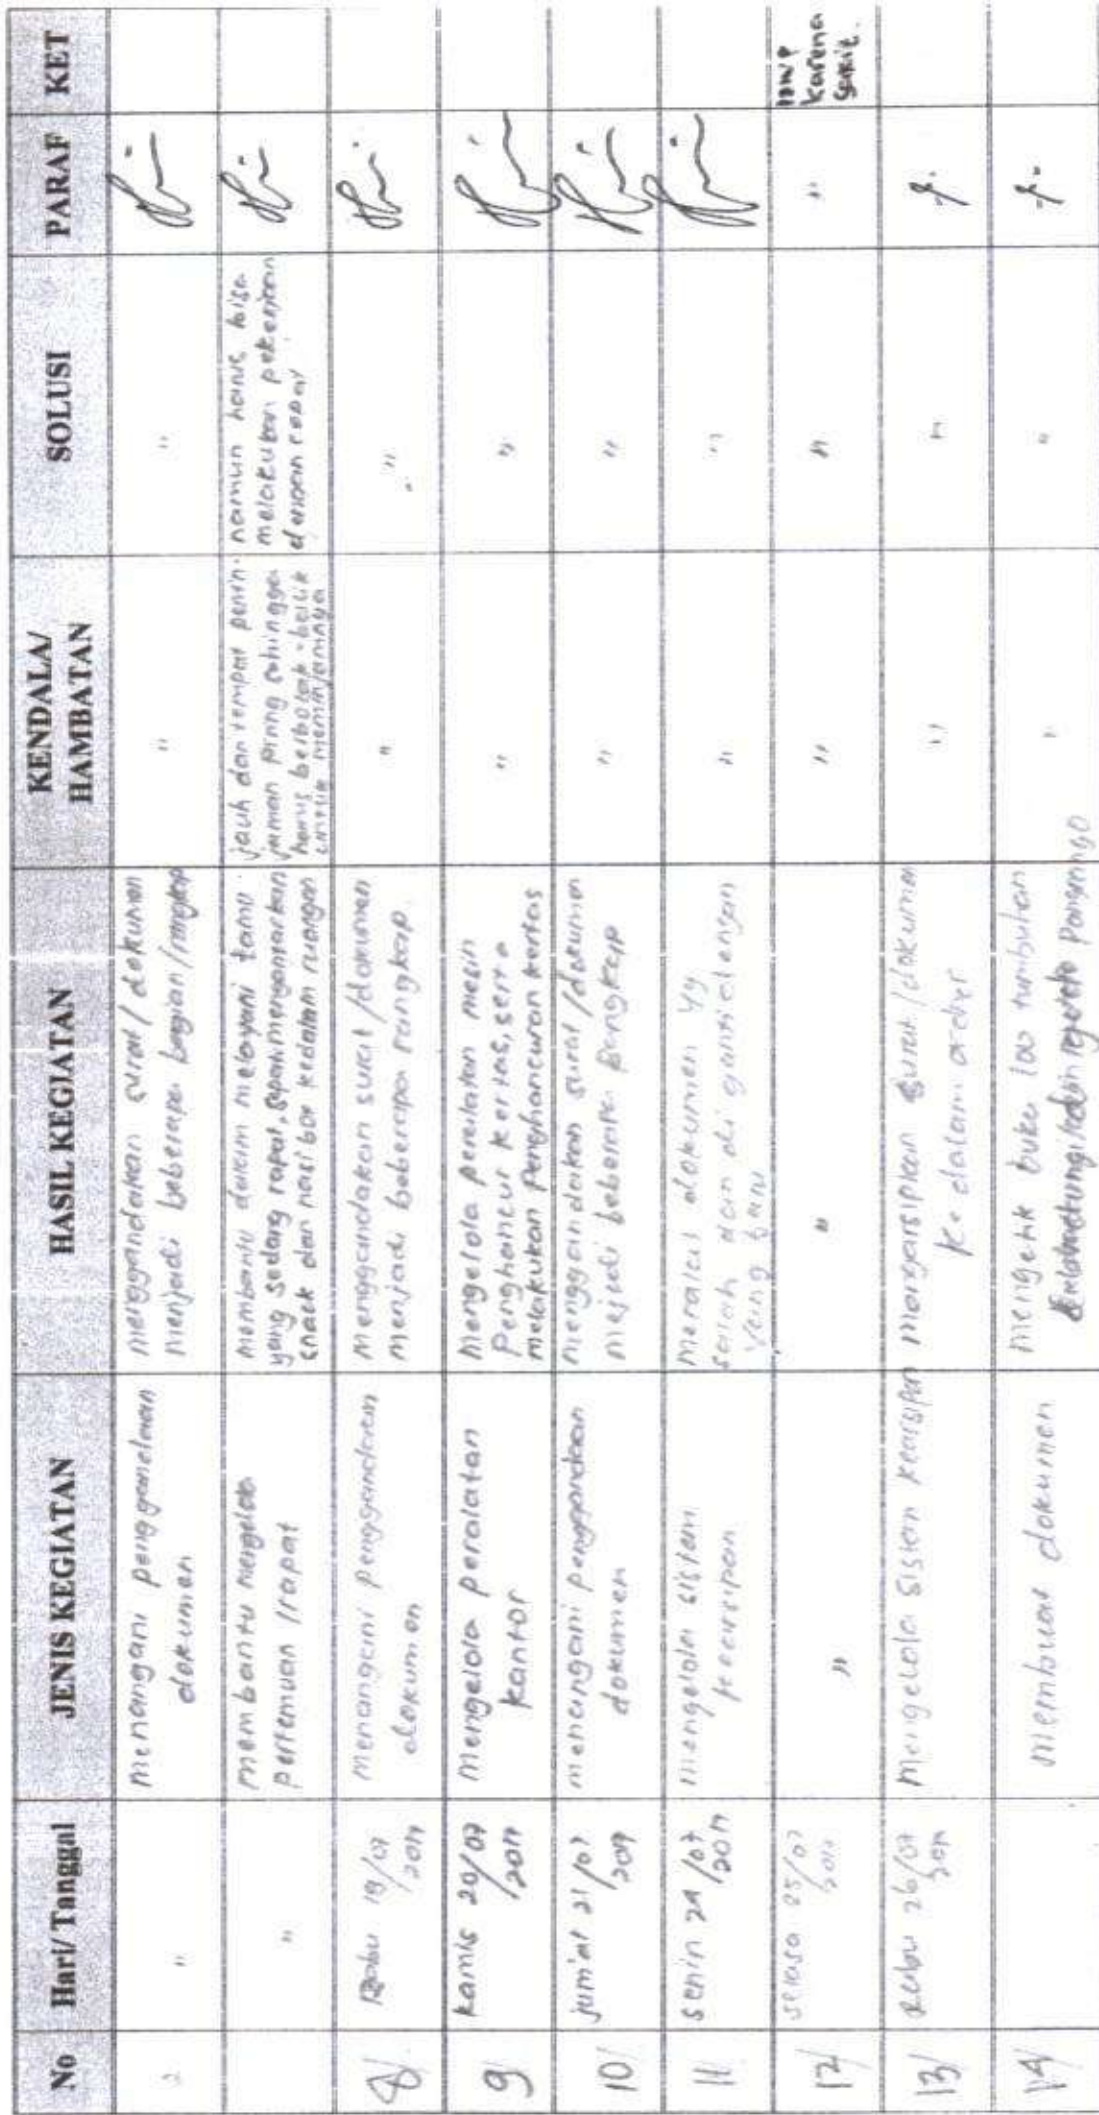 No Hari/Tanggal JENIS KEGIATAN HASIL KEGIATAN KENDALA/ SOLUSI PARAF KET
HAMBATAN
"
menangani penggandaan
dokumen
menggandakan surat/dokumen
menjadi beberapa bagian/rangkap
"
"
"
membantu mengelola
pertemuan/rapat
membantu dalam melayani tamu
yang sedang rapat, seperti mengantarkan
snack dan nasi box kedalam ruangan
jauh dari tempat pemin-
jaman piring sehingga
harus berbolak-balik
untuk meminjamnya
namun harus bisa
melakukan pekerjaan
dengan cepat
8/
Rabu 19/07
/2017
Menangani penggandaan
dokumen
Menggandakan surat/dokumen
menjadi beberapa rangkap.
"
"
9/
kamis 20/07
/2017
Mengelola peralatan
kantor
Mengelola peralatan mesin
Penghancur kertas, serta
melakukan Penghancuran kertas
"
"
10/
jum'at 21/07
/2017
menangani penggandaan
dokumen
menggandakan surat/dokumen
mejadi beberapa rangkap
"
"
11/
senin 24/07
/2017
mengelola sistem
kearsipan
meralat dokumen yg
salah dan di ganti dengan
yang baru
"
"
12/
selasa 25/07
2017
"
"
"
"
"
karena
sakit.
13/
Rabu 26/07
2017
Mengelola sistem kearsipan
mangarsipkan surat/dokumen
ke dalam order
"
"
14/
membuat dokumen
mengetik buku 100 tumbuhan
"
"